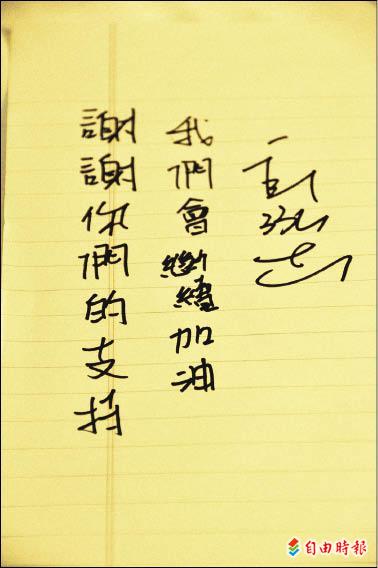 謝謝你們的支持
我們會繼續加油
自由時報